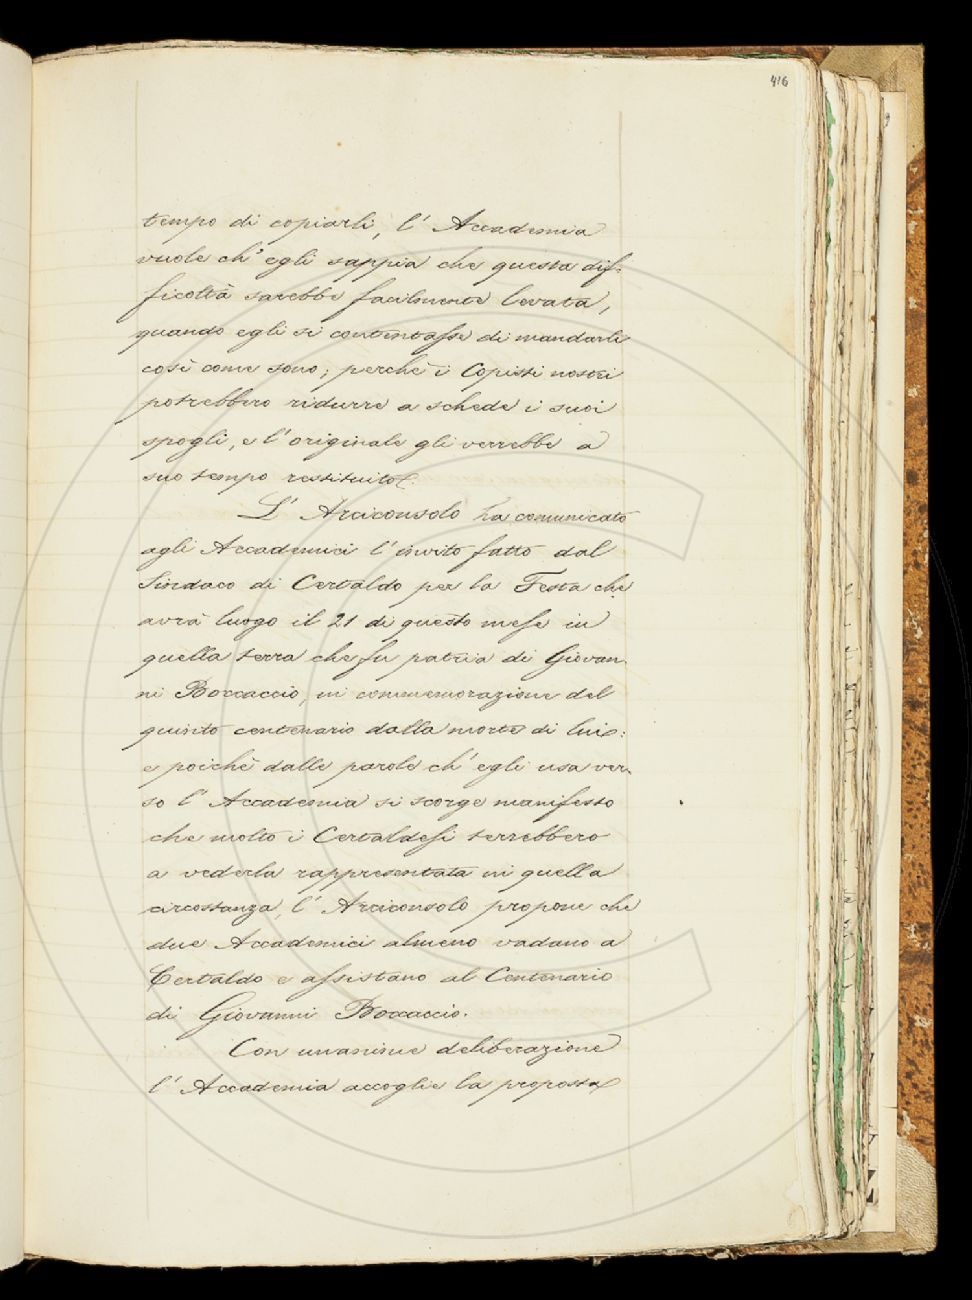 416
tempo di copiarli, l' Accademia
vuole ch' egli sappia che questa dif-
ficoltà sarebbe facilmente levata,
quando egli si contentasse di mandarli
così come sono; perchè i Copisti nostri
potrebbero ridurre a schede i suoi
spogli, e l' originale gli verrebbe a
suo tempo restituito.
L' Arciconsolo ha comunicato
agli Accademici l' invito fatto dal
Sindaco di Certaldo per la Festa che
avrà luogo il 21 di questo mese in
quella terra che fu patria di Giovan-
ni Boccaccio, in commemorazione del
quinto centenario dalla morte di lui:
e poichè dalle parole ch' egli usa ver-
so l' Accademia si scorge manifesto
che molto i Certaldesi terrebbero
a vederla rappresentata in quella
circostanza, l' Arciconsolo propone che
due Accademici almeno vadano a
Certaldo e assistano al Centenario
di Giovanni Boccaccio.
Con unanime deliberazione
l' Accademia accoglie la proposta